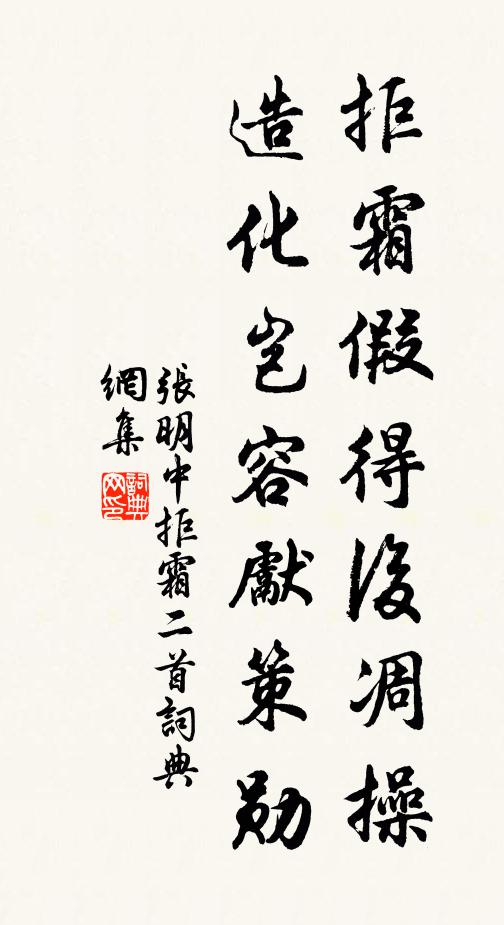 拒霜假得後凋操
造化豈容獻策勛
張明中拒霜二首詞典
網集
詞典
网印